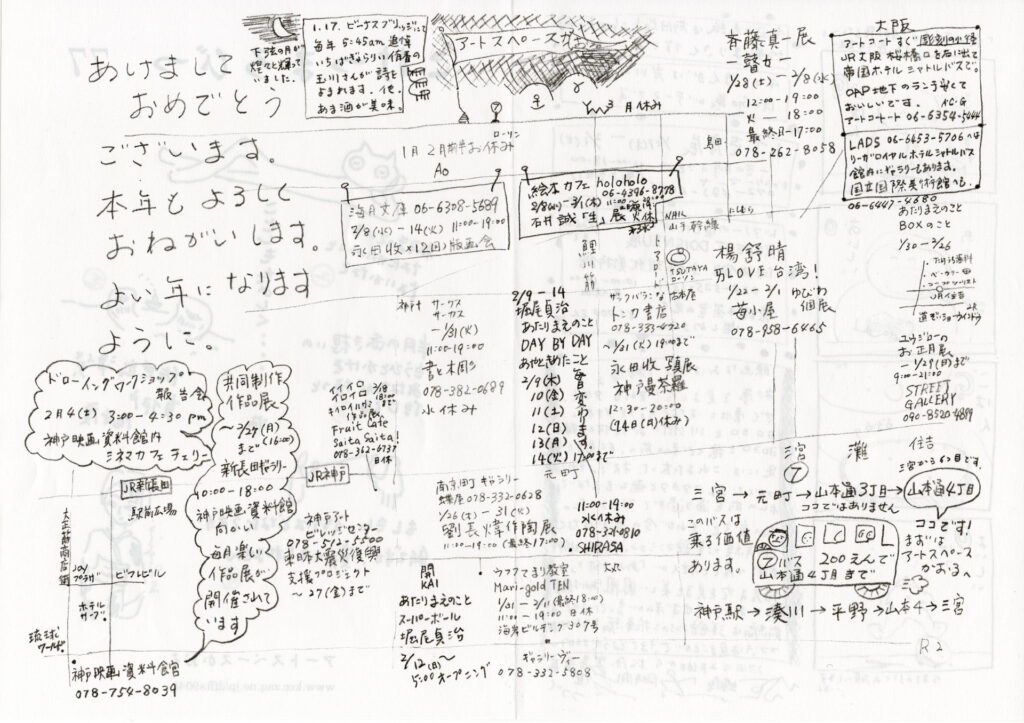 あけまして
おめでとう
ございます。
本年もよろしく
おねがいします。
よい年になります
ように。
下弦の月が
煌々と輝って
いました。
1.17. ビーナスブリッジにて
毎年 5:45am 追悼
いちばんきらりい
玉川さんが詩を
よまれます。他。
あま酒が美味。
アートスペースかおる
3月休み
斉藤真一展
ー瞽女ー
1/28(土)ー2/8(水)
12:00-19:00
火ー18:00
最終日-17:00
078-262-8058
大阪
アートコートすぐ彫刻の径
JR大阪 桜橋口を右に出て
帝国ホテルシャトルバスで。
OAP地下のランチ安くて
おいしいです。
アートコート 06-6354-5444
LADS 06-6453-5706へは
リーガロイヤルホテルシャトルバス
館内にギャラリーもあります。
国立国際美術館へも。
06-6447-4680
あたりまえのこと
BOXのこと
1/30-2/26
ローリン
1月2月前半お休み
海月文庫 06-6308-5689
2/8(水)-14(火) 11:00-19:00
永田收×12(回)版画会
絵本カフェ holoholo
06-4396-8778
石井誠「生」展 火休
鯉川筋
山手幹線
TSUTAYA
ローソン
楊舒晴
ILOVE台湾!
1/22-2/1
苺小屋 個展
078-958-6465
神戸
サークス
サーカス
-1/31(火)
11:00-19:00
音と本固し
078-382-0689
水休み
2/9-14
堀尾貞治
あたりまえのこと
DAY BY DAY
あやときめたこと
2/9(木) 毎
10(金) 日
11(土) 変
12(日) わ
13(月) り
14(火) ます
17:00まで
サンクバラこな古本屋
トンカ書店
078-333-4720
1/31(火)19:00まで
永田收写真展
神戸曼荼羅
12:30-20:00
ユウジローの
お正月展
-1/29(日)まで
9:00-21:00
STREET
GALLERY
090-8520-4899
ドローイングワークショップ
報告会
2月4(土) 3:00-4:30pm
神戸映画資料館内
シネマカフェ チェリー
共同制作
作品展
〜2/27(月)
まで (16:00)
新長田ギャラリー
10:00-18:00
神戸映画資料館
向かい
毎月楽しい
作品展が
開催されて
います
イロイロ
作品展
Fruit Cafe
Saita Saita!
078-362-6737
日休
JR新長田
駅前広場
JR神戸
大正筋商店街
ジョイプラザ
ピフルビル
ホテル
サーブ
琉球
ワールド
神戸映画資料館
078-754-8039
神戸アート
ビレッジセンター
078-512-5500
東日本大震災復興
支援プロジェクト
〜27(金)まで
元町
南京町ギャラリー
蝶屋 078-332-0628
1/26(土)-31(火)
劉長煒作陶展
11:00-19:00(最終17:00)
11:00-19:00
水く休み
078-321-0810
SHIRASA
開
KAI
あたりまえのこと
スーパーボール
堀尾貞治
2/12(日)〜
15:00オープニング
ウフフてまり教室
Mari-gold TEN
1/31-2/11(最終18:00)
11:00-19:00 日休
海岸ビルヂング307号
ギャラリーヴィー
078-332-5808
三宮
⑦
灘
住吉
三宮から6コ目です。
三宮→元町→山本通3丁目→山本通4丁目
ココではありません
ココです!
まずは
アートスペース
かおるへ
このバスは
乗る価値
あります。
⑦バス 200えんで
山本通4丁目まで
神戸駅→湊川→平野→山本4→三宮
R2